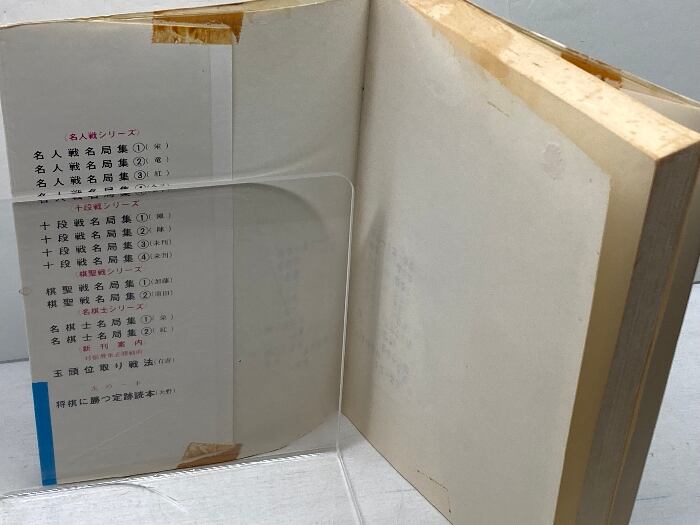 〈名人戦シリーズ〉
名人戦名局集①(栄)
名人戦名局集②(竜)
名人戦名局集③(紅)
名人戦名局集
〈十段戦シリーズ〉
十段戦名局集①
十段戦名局集②
十段戦名局集③(未刊)
十段戦名局集④(未刊)
〈棋聖戦シリーズ〉
棋聖戦名局集①(加藤)
棋聖戦名局集②
〈名棋士シリーズ〉
名棋士名局集①(栄)
名棋士名局集②(紅)
〈新刊案内〉
玉頭位取り戦法(有吉)
次の一手
将棋に勝つ定跡読本(大野)